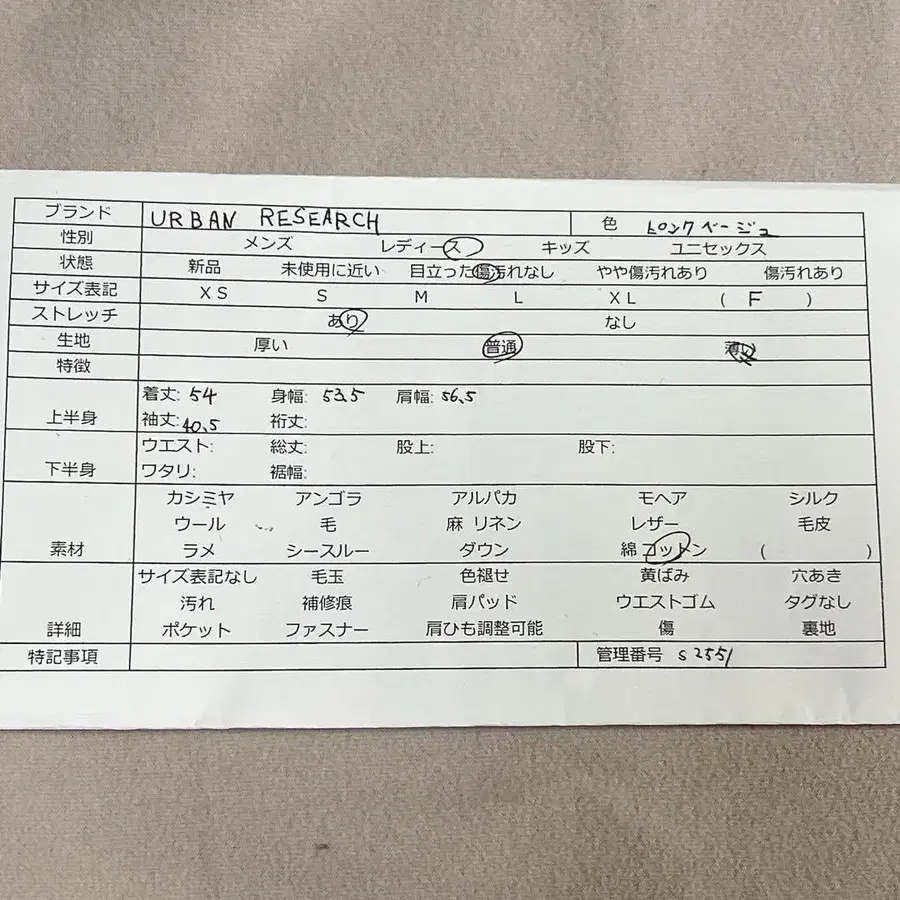 ブランド URBAN RESEARCH 色 ピンクベージュ
性別 メンズ レディース キッズ ユニセックス
状態 新品 未使用に近い 目立った傷汚れなし やや傷汚れあり 傷汚れあり
サイズ表記 XS S M L XL ( F )
ストレッチ あり なし
生地 厚い 普通 薄い
特徴
上半身 着丈: 54 身幅: 53.5 肩幅: 56.5
袖丈: 40.5 裄丈:
下半身 ウエスト: 総丈: 股上: 股下:
ワタリ: 裾幅:
カシミヤ アンゴラ アルパカ モヘア シルク
ウール 毛 麻 リネン レザー 毛皮
素材 ラメ シースルー ダウン 綿 コットン ( )
サイズ表記なし 毛玉 色褪せ 黄ばみ 穴あき
汚れ 補修痕 肩パッド ウエストゴム タグなし
詳細 ポケット ファスナー 肩ひも調整可能 傷 裏地
特記事項 管理番号 S2551